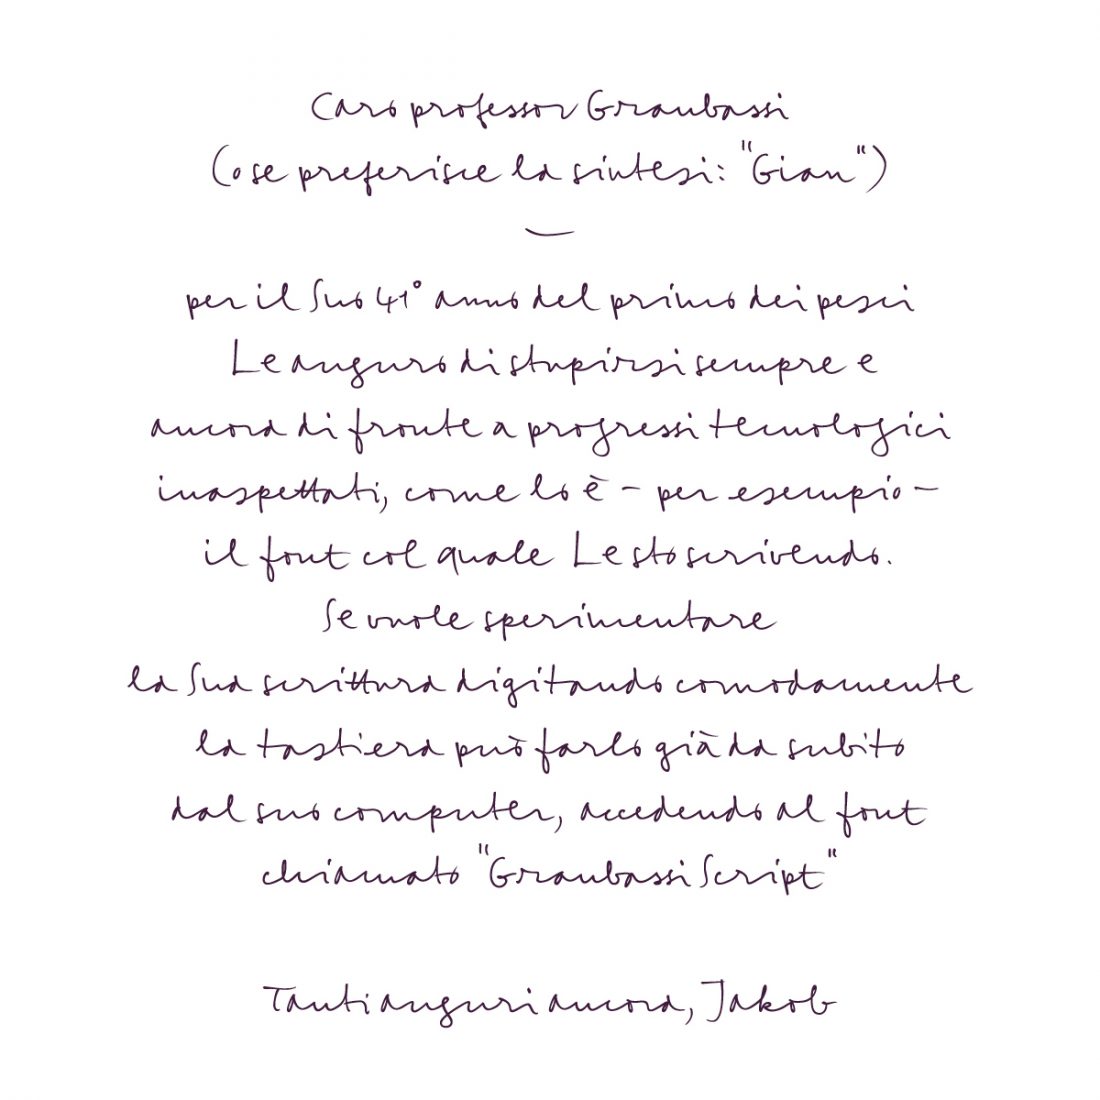 Caro professor Graubassi
(o se preferisce la sintesi: "Gian")
—
per il Suo 41° anno del primo dei pesci
Le auguro di stupirsi sempre e
ancora di fronte a progressi tecnologici
inaspettati, come lo è – per esempio –
il font col quale Le sto scrivendo.
Se vuole sperimentare
la Sua scrittura digitando comodamente
la tastiera può farlo già da subito
dal suo computer, accedendo al font
chiamato "Graubassi Script"
Tanti auguri ancora, Jakob